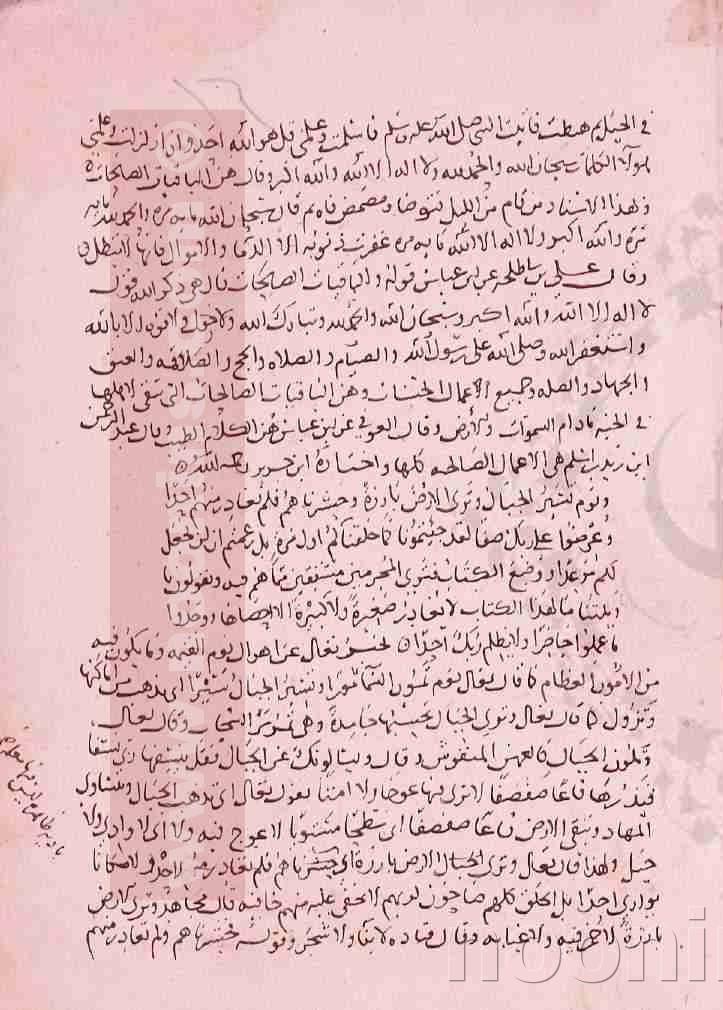 في الجبل ثم هبطت فاتيت النبي صلى الله عليه وسلم فاسلمت وعلمني قل هو الله احد واذا زلزلت وعلمني
هولاء الكلمات سبحان الله والحمد لله ولا اله الا الله والله اكبر وقال هن الباقيات الصالحات
وبهذا الاسناد من قام من الليل فتوضا ومضمض فاه ثم قال سبحان الله مايه مره والحمد لله مايه
مره والله اكبر ولا اله الا الله مايه مره غفرت ذنوبه الا الدما والاموال فانها لا تبطل
وقال علي بن ابي طلحه عن ابن عباس قوله والباقيات الصالحات قال هي ذكر الله قول
لا اله الا الله والله اكبر وسبحان الله والحمد لله وتبارك الله ولا حول ولا قوه الا بالله
واستغفر الله وصلى الله على رسول الله والصيام والصلاه والحج والصدقه والعتق
والجهاد والصله وجميع الاعمال الحسنات وهن الباقيات الصالحات التي تبقى لاهلها
في الجنه ما دام السموات والارض وقال العوفي عن ابن عباس هن الكلام الطيب وقال عبد الرحمن
ابن زيد بن اسلم هي الاعمال الصالحه كلها واختاره ابن جرير رحمه الله
ويوم نسير الجبال وترى الارض بارزة وحشرناهم فلم نغادر منهم احدا
وعرضوا على ربك صفا لقد جئتمونا كما خلقناكم اول مرة بل زعمتم ان لن نجعل
لكم موعدا ووضع الكتاب فترى المجرمين مشفقين مما فيه ويقولون يا
ويلتنا مال هذا الكتاب لا يغادر صغيرة ولا كبيرة الا احصاها ووجدوا
ما عملوا حاضرا ولا يظلم ربك احدا يخبر تعالى عن اهوال يوم القيمه وما يكون فيه
من الامور العظام كما قال تعالى يوم تمور السما مورا وتسير الجبال سيرا اي تذهب من اماكنها
وتزول كما قال تعالى وترى الجبال تحسبها جامدة وهي تمر مر السحاب وقال تعالى
وتكون الجبال كالعهن المنفوش وقال ويسالونك عن الجبال فقل ينسفها ربي نسفا
فيذرها قاعا صفصفا لا ترى فيها عوجا ولا امتا يقول تعالى انه تذهب الجبال وتتساوى
المهاد وتبقى الارض قاعا صفصفا اي سطحا مستويا لا عوج فيه ولا اي لا وادي ولا
جبل ولهذا قال تعالى وترى الارض بارزة اي
يواري احدا بل الخلق كلهم ضاحون لربهم لا تخفى عليه منهم خافيه قال مجاهد وترى الارض
بارزة لا خمر فيه ولا غيابه وقال قتاده لا بنا ولا شجر وقوله وحشرناهم فلم نغادر منهم
noorli